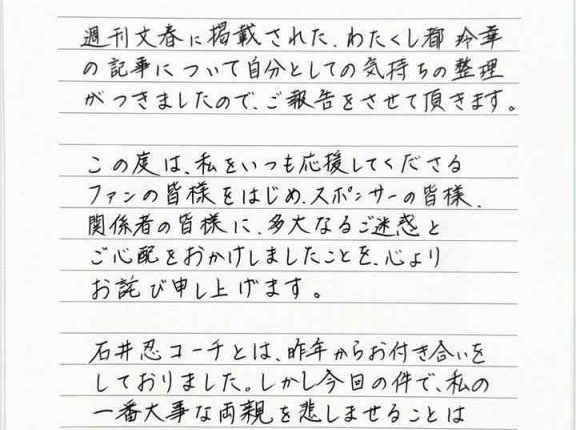 週刊文春に掲載された、わたくし都 玲華
の記事について自分としての気持ちの整理
がつきましたので、ご報告をさせて頂きます。
この度は、私をいつも応援してくださる
ファンの皆様をはじめ、スポンサーの皆様、
関係者の皆様に、多大なるご迷惑と
ご心配をおかけしましたことを、心より
お詫び申し上げます。
石井忍コーチとは、昨年からお付き合いを
しておりました。しかし今回の件で、私の
一番大事な両親を悲しませることは